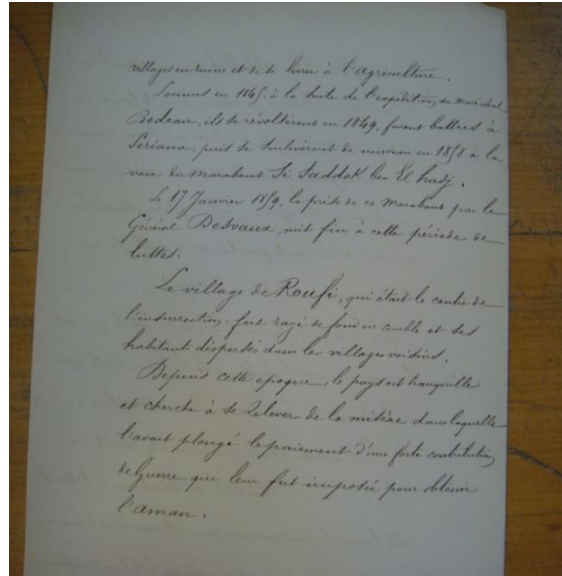 villages en ruine et de se livrer à l'agriculture.
Soumis en 1845 à la suite de l'expédition du maréchal
Bedeau, ils se révoltèrent en 1849, furent battus à
Seriana, puis se soulevèrent de nouveau en 1858 à la
voix du marabout Si Saddok ben El hadj.
Le 17 Janvier 1859, la prise de ce marabout par le
Général Desvaux, mit fin à cette période de
luttes.
Le village de Roufi, qui était le centre de
l'insurrection, fut rasé de fond en comble et ses
habitants dispersés dans les villages voisins.
Depuis cette époque, le pays est tranquille
et cherche à se relever de la misère dans laquelle
l'avait plongé le paiement d'une forte contribution
de Guerre qui leur fut imposée pour obtenir
l'aman.